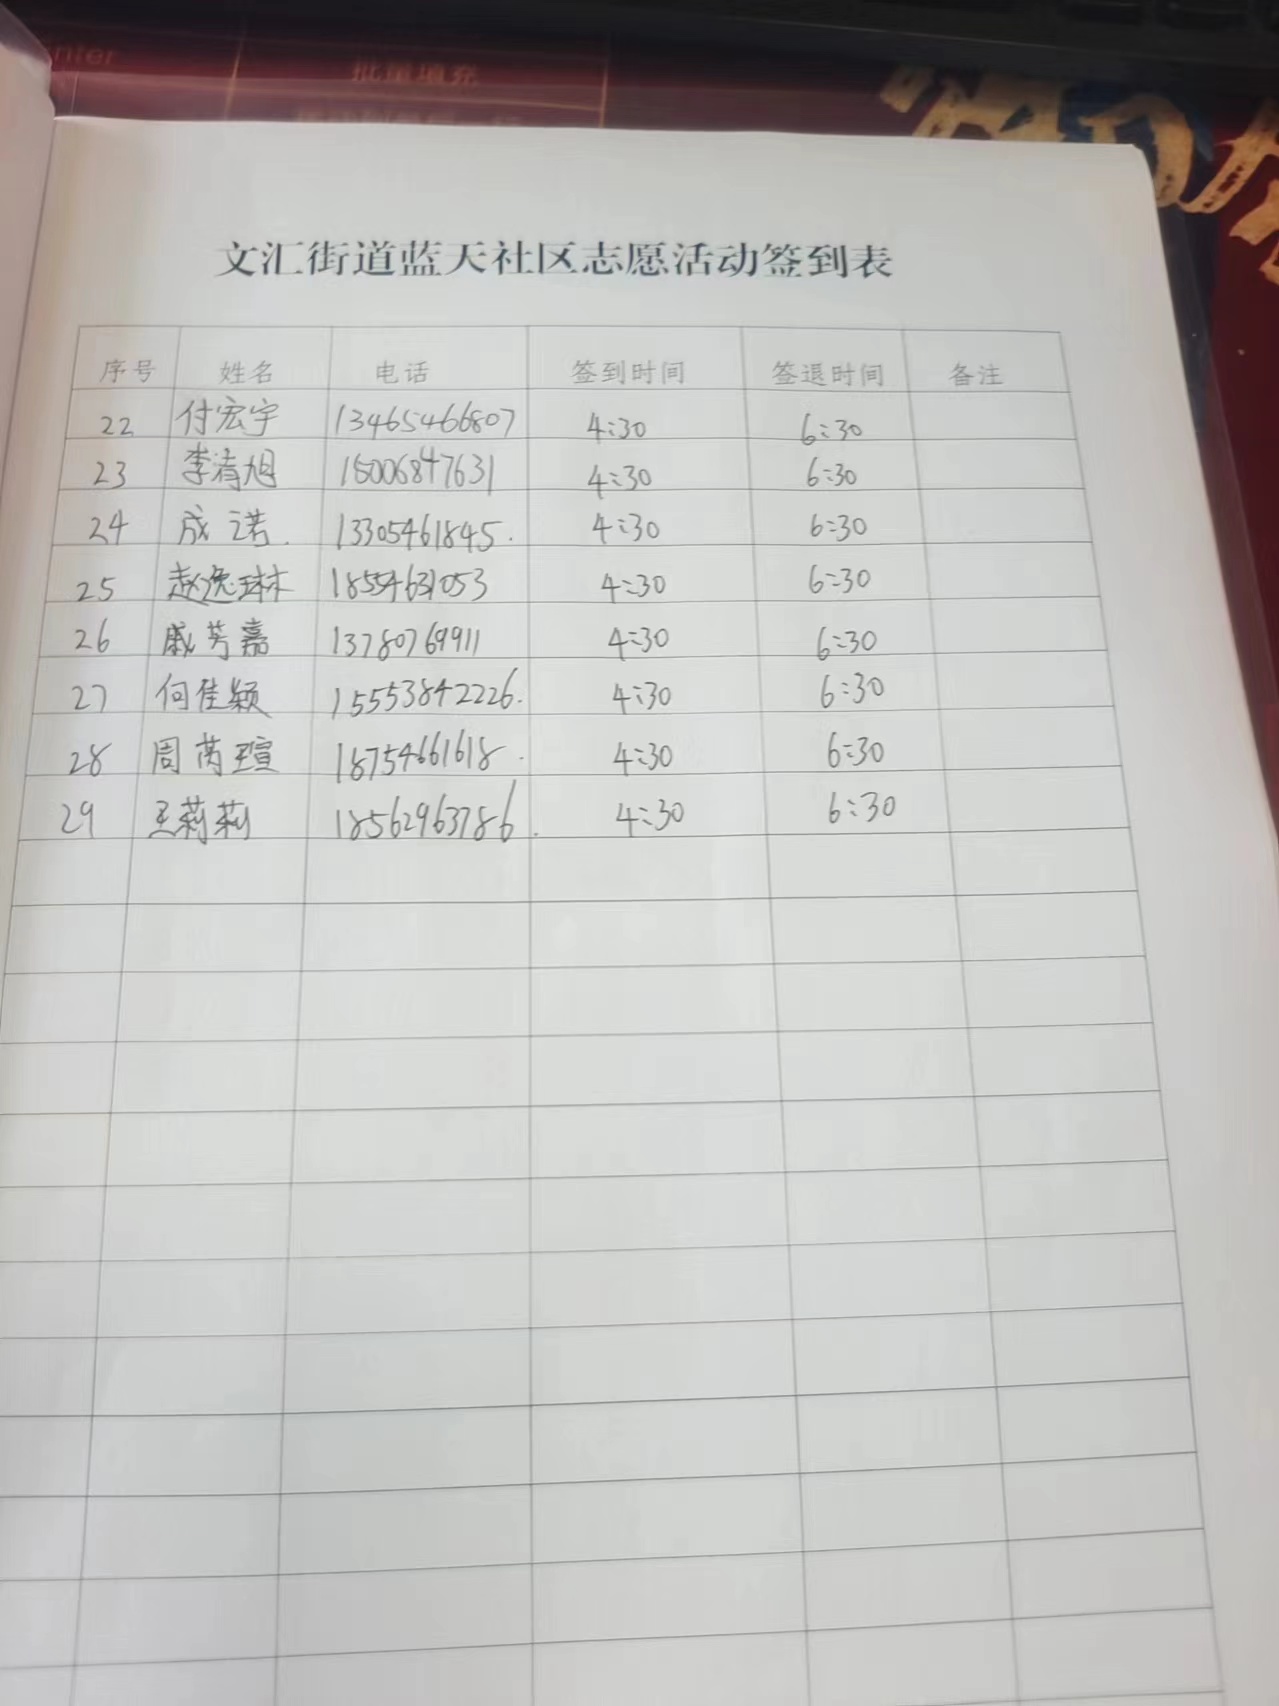 enter
批量填充
文汇街道蓝天社区志愿活动签到表
序号 姓名 电话 签到时间 签退时间 备注
22 付宏宇 13465466807 4:30 6:30
23 李清旭 15006847631 4:30 6:30
24 成诺. 13305461845. 4:30 6:30
25 赵逸琳 18554631053 4:30 6:30
26 戚芳嘉 13780769911 4:30 6:30
27 何佳颖 15553842226. 4:30 6:30
28 周芮瑄 18754661618. 4:30 6:30
29 王莉莉 18562963786. 4:30 6:30